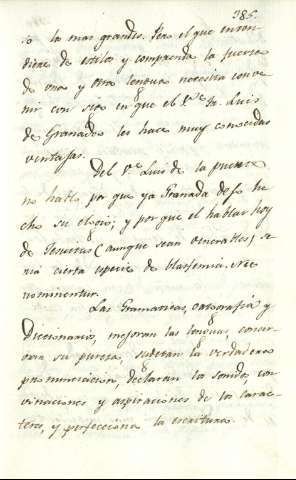 386.
o la mas grande. Pero el que enten
diere de estilos y comprenda la fuerza
de una y otra lengua necesita conve
nir con sto en que el V.e Fr. Luis
de Granada les hace muy conocidas
ventajas.
Del V.e Luis de la puente
no hablo por que ya Granada dejo he
cho su elogio; y por que el hablar hoy
de Jesuitas (aunque sean venerables) se
ria cierta especie de blasfemia. Nec
nominentur.
Las Gramaticas, ortografia y
Diccionarios, mejoran las lenguas, conser
van su pureza, la verdadera
pronunciacion, declaran los sonidos, con
vinaciones y aspiraciones de los carac
teres, y perfecciona la escritura.